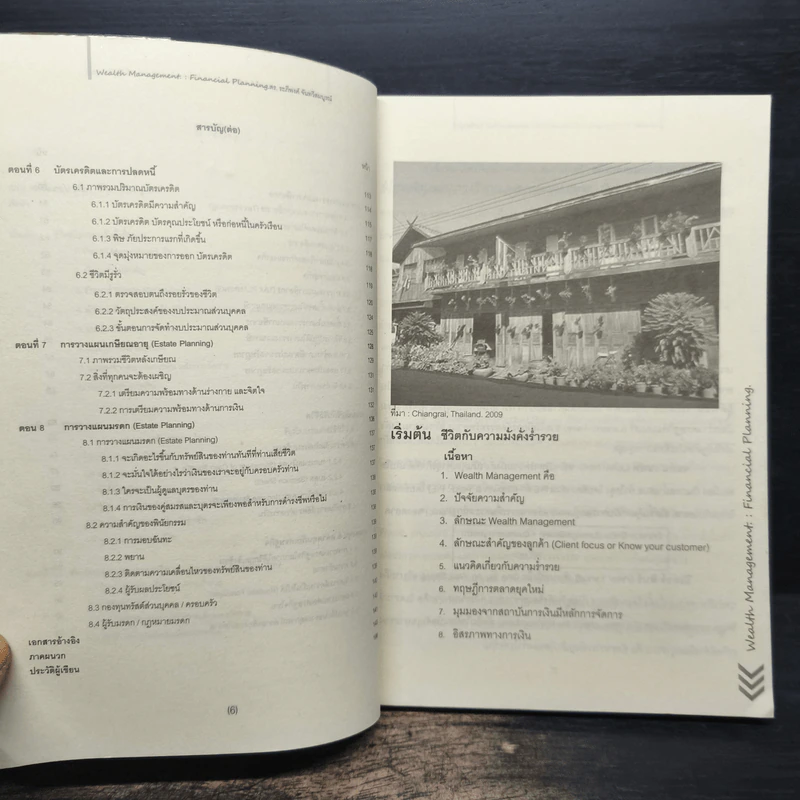 Wealth Management : Financial Planning
สารบัญ(ต่อ)
หน้า
ตอนที่ 6 บัตรเครดิตและการปลดหนี้
6.1 ภาพรวมปริมาณบัตรเครดิต 113
6.1.1 บัตรเครดิตมีความสำคัญ 114
6.1.2 บัตรเครดิต บัตรคุณประโยชน์ หรือก่อหนี้ในครัวเรือน
6.1.3 พิษ ภัยประการแรกที่เกิดขึ้น 117
6.1.4 จุดมุ่งหมายของการออก บัตรเครดิต
6.2 ชีวิตมีรูรั่ว
6.2.1 ตรวจสอบตนถึงรอยรั่วของชีวิต
6.2.2 วัตถุประสงค์ของงบประมาณส่วนบุคคล
6.2.3 ขั้นตอนการจัดทำงบประมาณส่วนบุคคล
ตอนที่ 7 การวางแผนเกษียณอายุ (Estate Planning) 128
7.1 ภาพรวมชีวิตหลังเกษียณ 129
7.2 สิ่งที่ทุกคนจะต้องเผชิญ 131
7.2.1 เตรียมความพร้อมทางด้านร่างกาย และจิตใจ
7.2.2 การเตรียมความพร้อมทางด้านการเงิน 132
ตอน 8 การวางแผนมรดก (Estate Planning)
8.1 การวางแผนมรดก (Estate Planning)
8.1.1 จะเกิดอะไรขึ้นกับทรัพย์สินของท่านทันทีที่ท่านเสียชีวิต
8.1.2 จะมั่นใจได้อย่างไรว่าเงินของเราจะอยู่กับครอบครัวท่าน
8.1.3 ใครจะเป็นผู้ดูแลบุตรของท่าน
8.1.4 การเงินของคู่สมรสและบุตรจะเพียงพอสำหรับการดำรงชีพหรือไม่
8.2 ความสำคัญของพินัยกรรม
8.2.1 การมอบฉันทะ
8.2.2 พยาน
8.2.3 ติดตามความเคลื่อนไหวของทรัพย์สินของท่าน
8.2.4 ผู้รับผลประโยชน์
8.3 กองทุนทรัสต์ส่วนบุคคล / ครอบครัว
8.4 ผู้รับมรดก / กฎหมายมรดก
เอกสารอ้างอิง
ภาคผนวก
ประวัติผู้เขียน
(6)
ที่มา : Chiangrai, Thailand. 2009
เริ่มต้น ชีวิตกับความมั่งคั่งร่ำรวย
เนื้อหา
1. Wealth Management คือ
2. ปัจจัยความสำคัญ
3. ลักษณะ Wealth Management
4. ลักษณะสำคัญของลูกค้า (Client focus or Know your customer)
5. แนวคิดเกี่ยวกับความร่ำรวย
6. ทฤษฎีการตลาดยุคใหม่
7. มุมมองจากสถาบันการเงินมีหลักการจัดการ
8. อิสรภาพทางการเงิน
Wealth Management : Financial Planning.